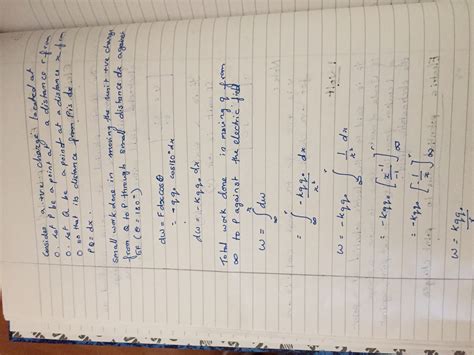 Consider a +ve charge located at
O. Let P be a point at a distance r from
O. Let Q be a point at a distance x from
O so that its distance from P is dx.
PQ = dx.
Small work done in moving the unit +ve charge
from Q to P through small distance dx against
(θ = 180°)
dw = F dx cosθ
cos180° dx
dw = -kqq₀ dx
Total work done is moving q from
∞ to P against the electric field
W = ∫ dw
= ∫ -kqq₀/x² dx
W = -kqq₀ ∫ 1/x² dx
= -kqq₀ [x⁻¹/-1]
= -kqq₀ [-1/x]
W = kqq₀